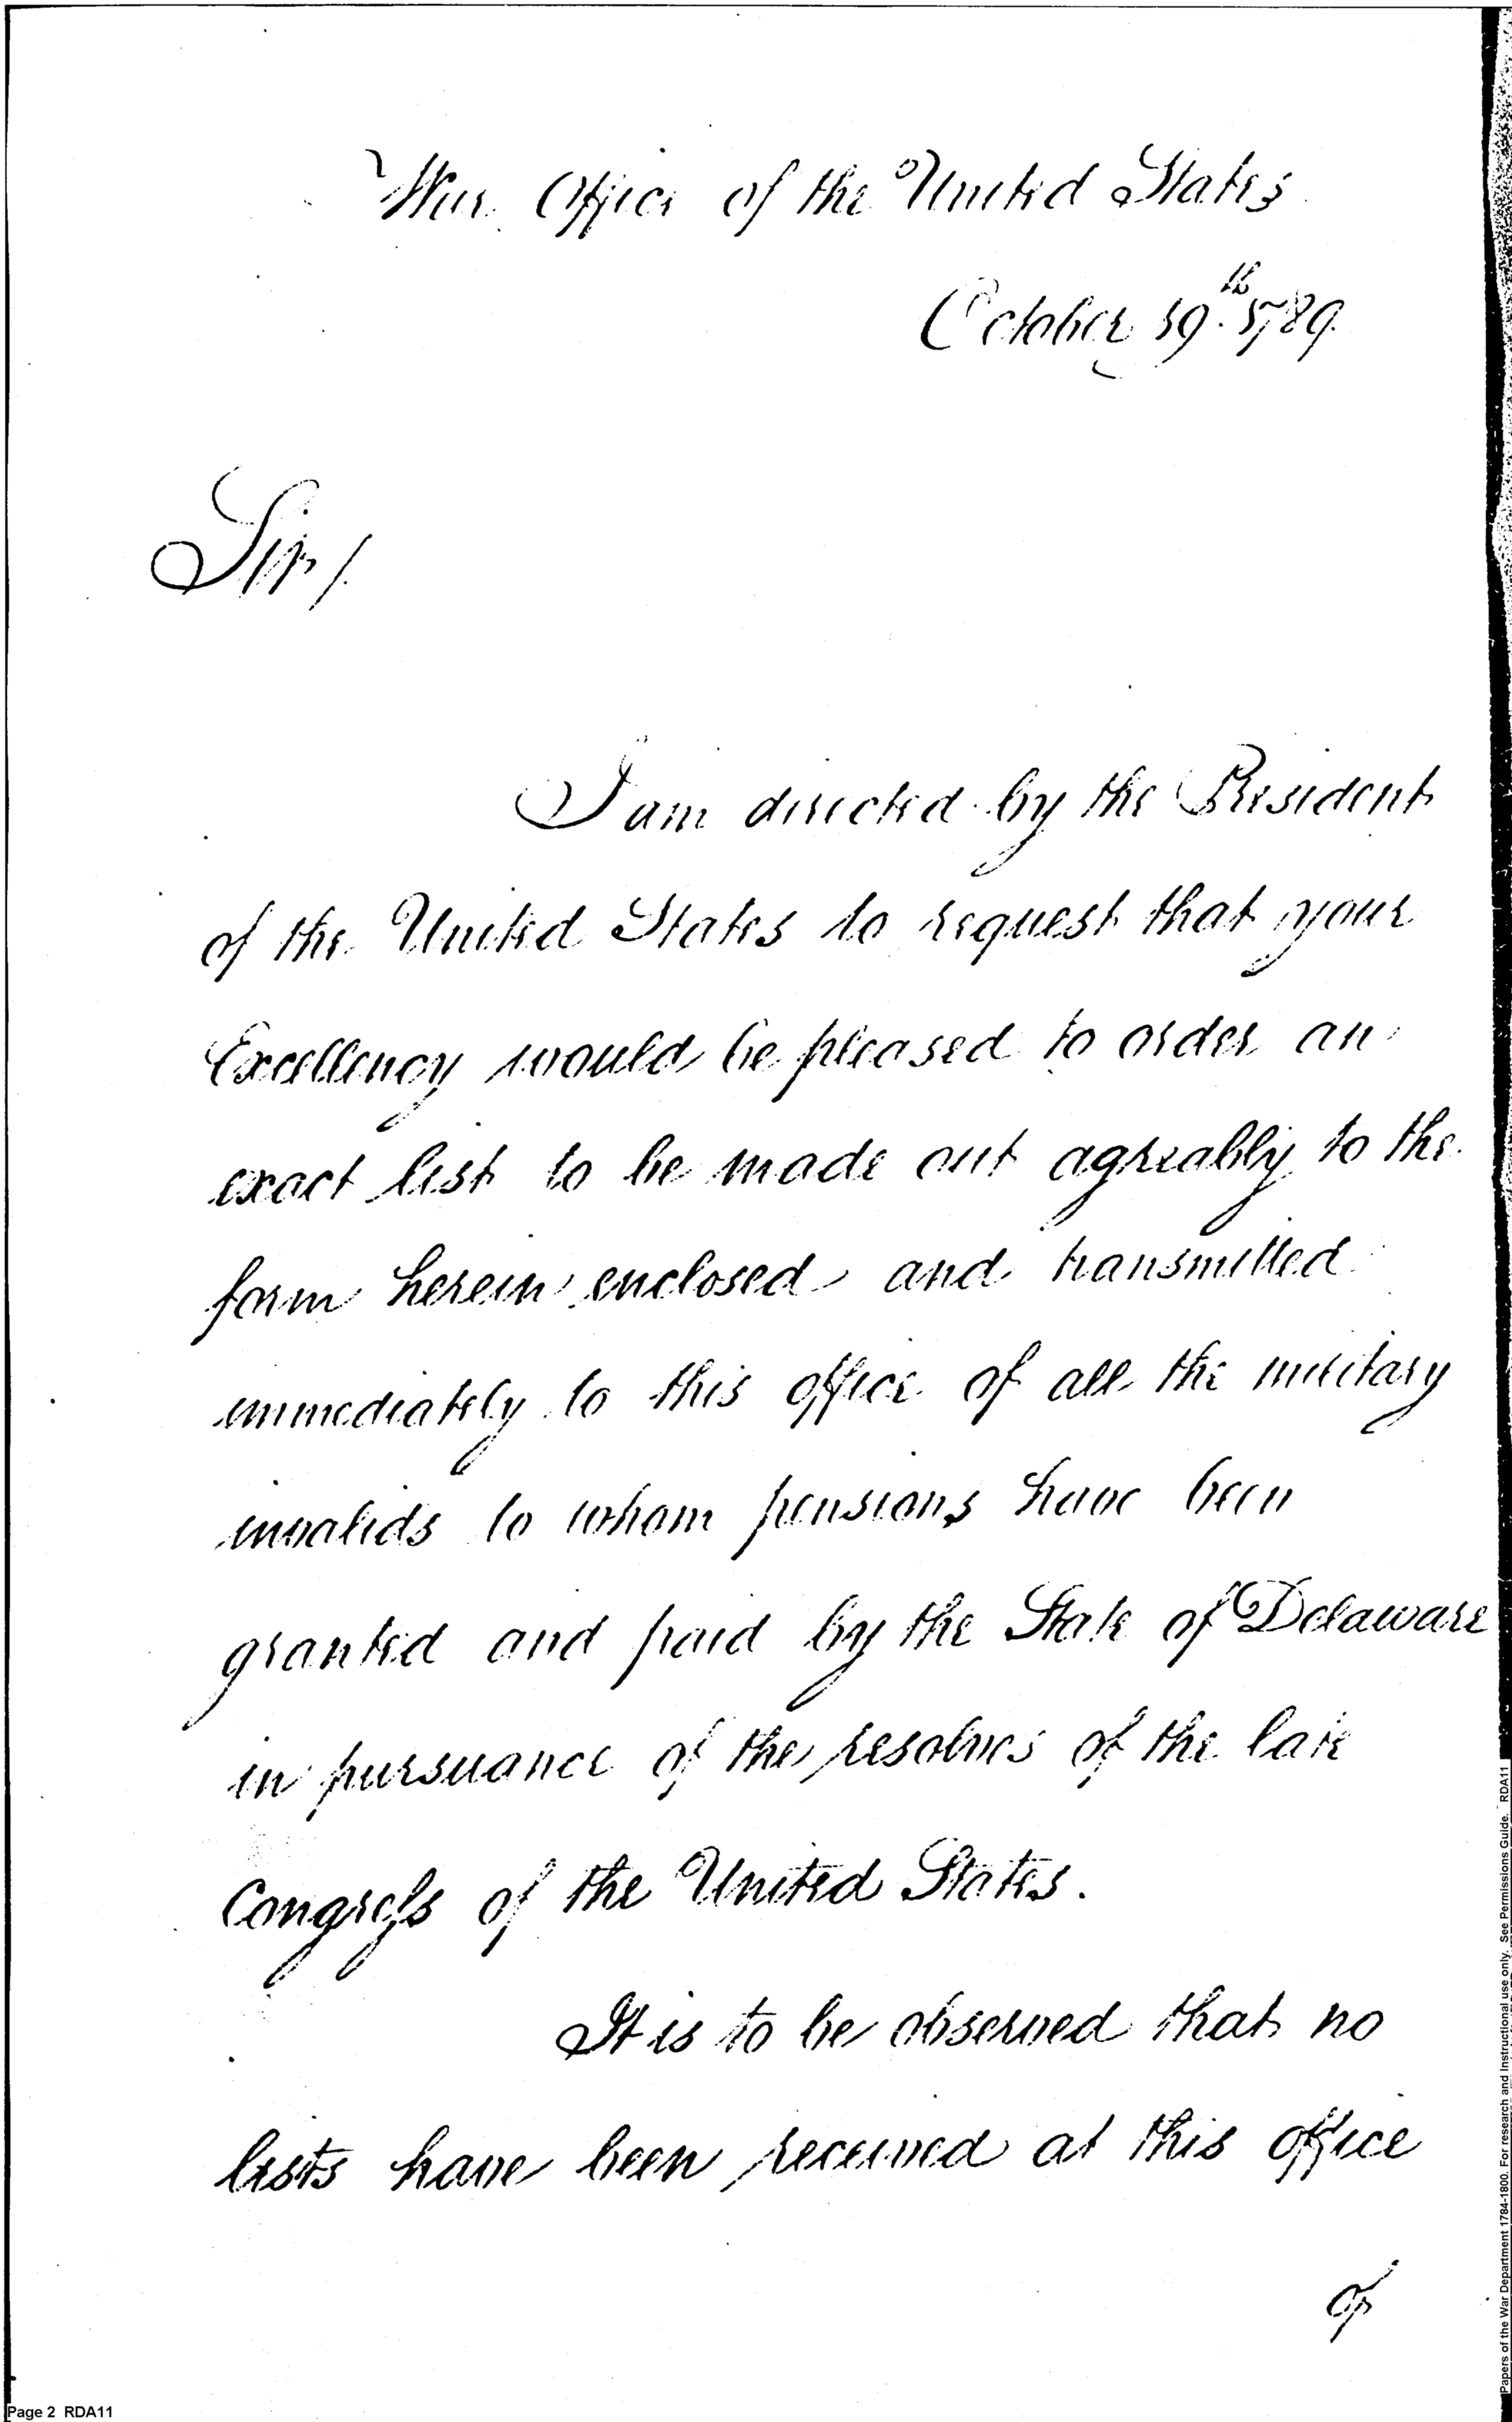 War Office of the United States
October 19th. 1789.
Sir/.
I am directed by the President
of the United States to request that your
Excellency would be pleased to order an
exact list to be made out agreably to the
form herein enclosed and transmitted
immediately to this office of all the military
invalids to whom pensions have been
granted and paid by the State of Delaware
in pursuance of the resolves of the late
Congress of the United States.
It is to be observed that no
lists have been received at this office
of
Page 2 RDA11
Papers of the War Department 1784-1800. For research and Instructional use only. See Permissions Guide. RDA11